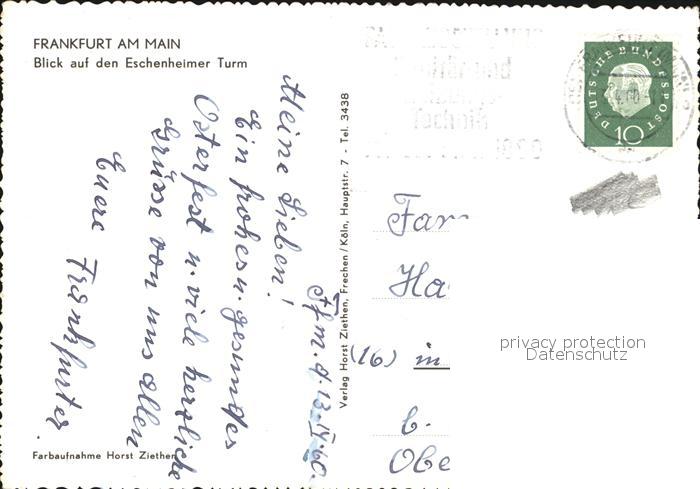 FRANKFURT AM MAIN
Blick auf den Eschenheimer Turm
Ffm. d. 13.IV.60.
Meine Lieben!
Ein frohes u. gesundes
Osterfest u. viele herzliche
Grüsse von uns allen
Euere Frankfurter.
Farbaufnahme Horst Ziethen
Verlag Horst Ziethen, Frechen/Köln, Hauptstr. 7 - Tel. 3438
Technik
DEUTSCHE BUNDESPOST
10
Fam
Ha
(16) in
b.
Obe
privacy protection
Datenschutz